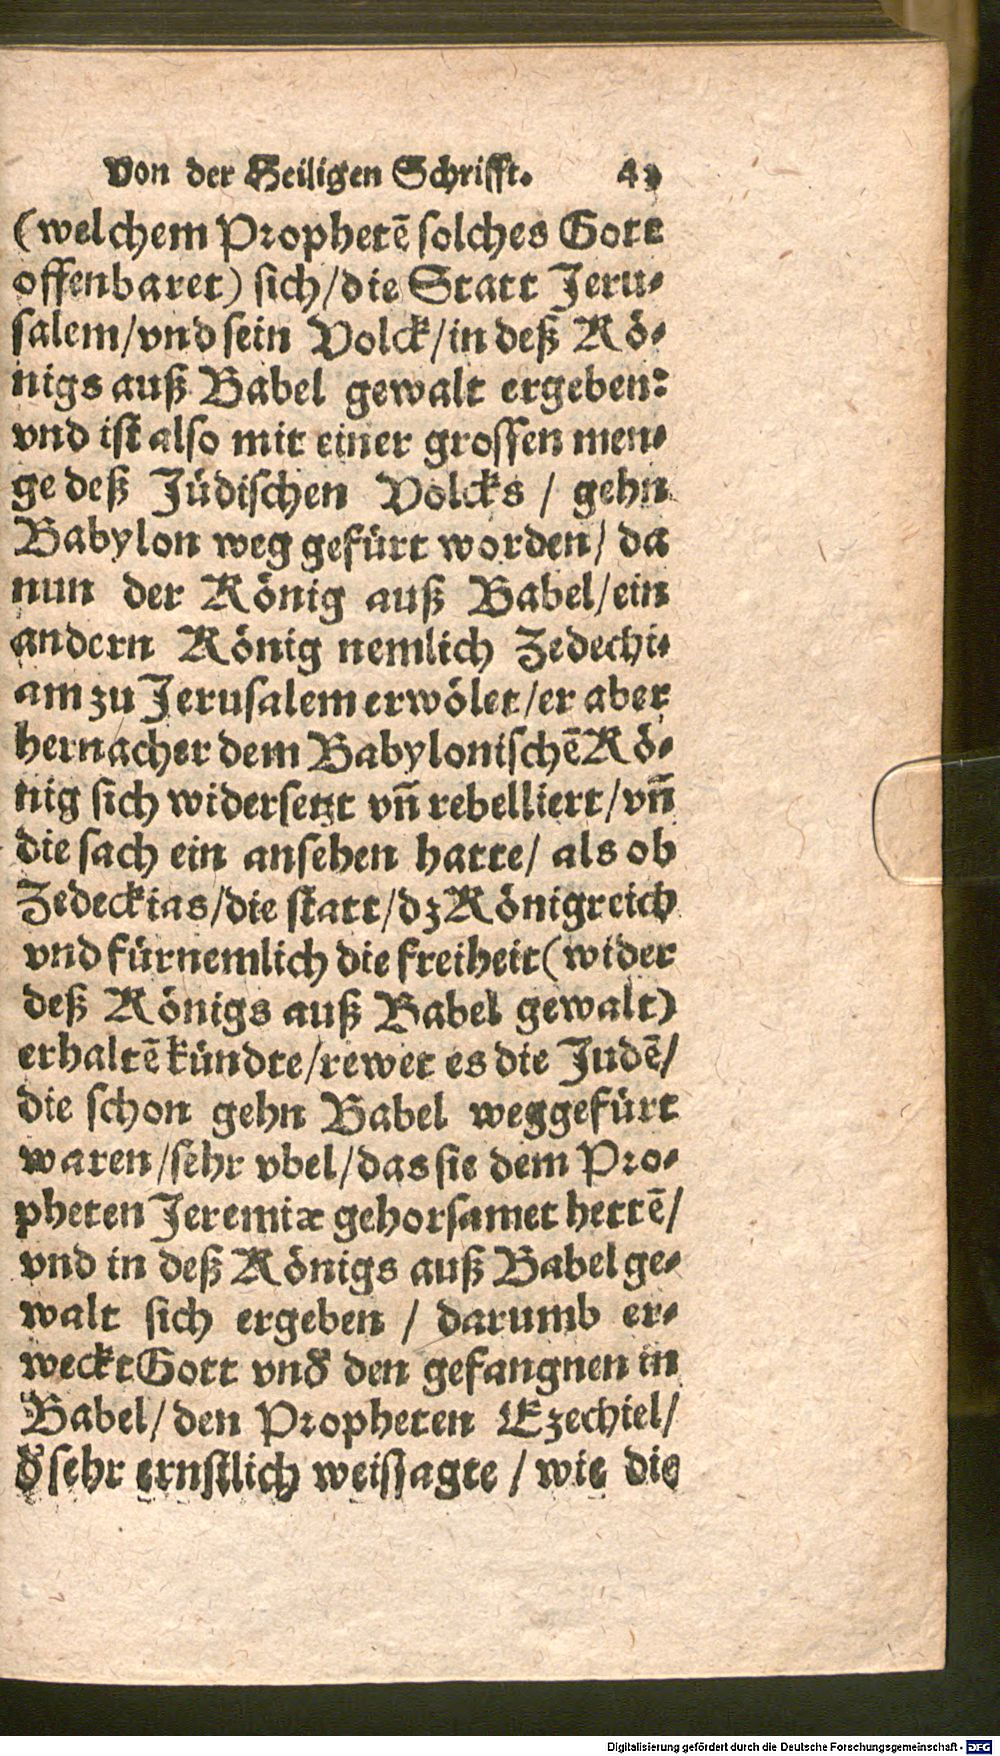 Von der Heiligen Schrifft.
(welchem Prophetē solches Gott
offenbaret) sich/die Statt Jeru-
salem/vnd sein Volck/in deß Kö-
nigs auß Babel gewalt ergeben:
vnd ist also mit einer grossen men-
ge deß Jüdischen Volcks / gehn
Babylon weg gefürt worden/ da
nun der König auß Babel/ein
andern König nemlich Zedechi-
am zu Jerusalem erwölet/er aber
hernacher dem Babylonischē Kö-
nig sich widersetzt vn̄ rebelliert/vn̄
die sach ein ansehen hatte/ als ob
Zedeckias/die statt/dz Königreich
vnd fürnemlich die freiheit(wider
deß Königs auß Babel gewalt)
erhaltē kündte/rewet es die Judē/
die schon gehn Babel weggefürt
waren/sehr vbel/das sie dem Pro-
pheten Jeremiæ gehorsamet hettē/
vnd in deß Königs auß Babel ge-
walt sich ergeben / darumb er-
weckt Gott vnď den gefangnen in
Babel/ den Propheten Ezechiel/
ď sehr ernstlich weissagte / wie die
Digitalisierung gefördert durch die Deutsche Forschungsgemeinschaft - DFG